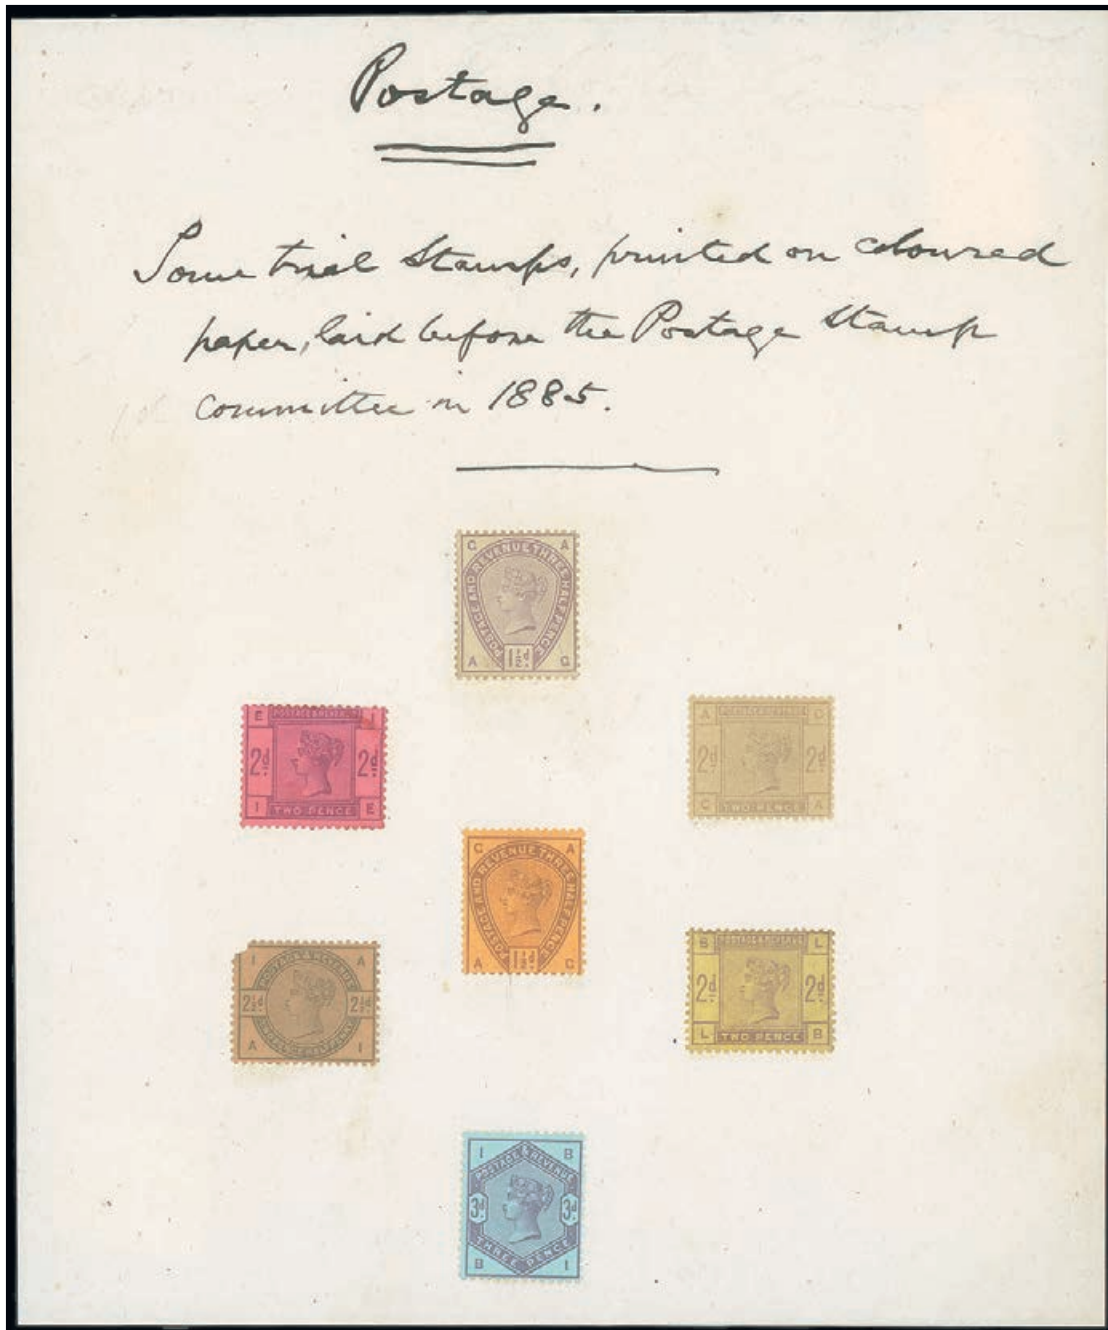 Postage.
Some trial Stamps, printed on coloured
paper, laid before the Postage Stamp
Committee in 1885.
G A
POSTAGE AND REVENUE THREE HALF PENCE
1½d.
A G
E POSTAGE & REVENUE I
2d. 2d.
I TWO PENCE E
A POSTAGE & REVENUE
2d. 2d.
TWO PENCE A
G A
POSTAGE AND REVENUE THREE HALF PENCE
1½d.
A G
I A
POSTAGE & REVENUE
2½d. 2½d.
A I
B POSTAGE & REVENUE L
2d. 2d.
L TWO PENCE B
I B
POSTAGE & REVENUE
3d. 3d.
THREE PENCE
B I